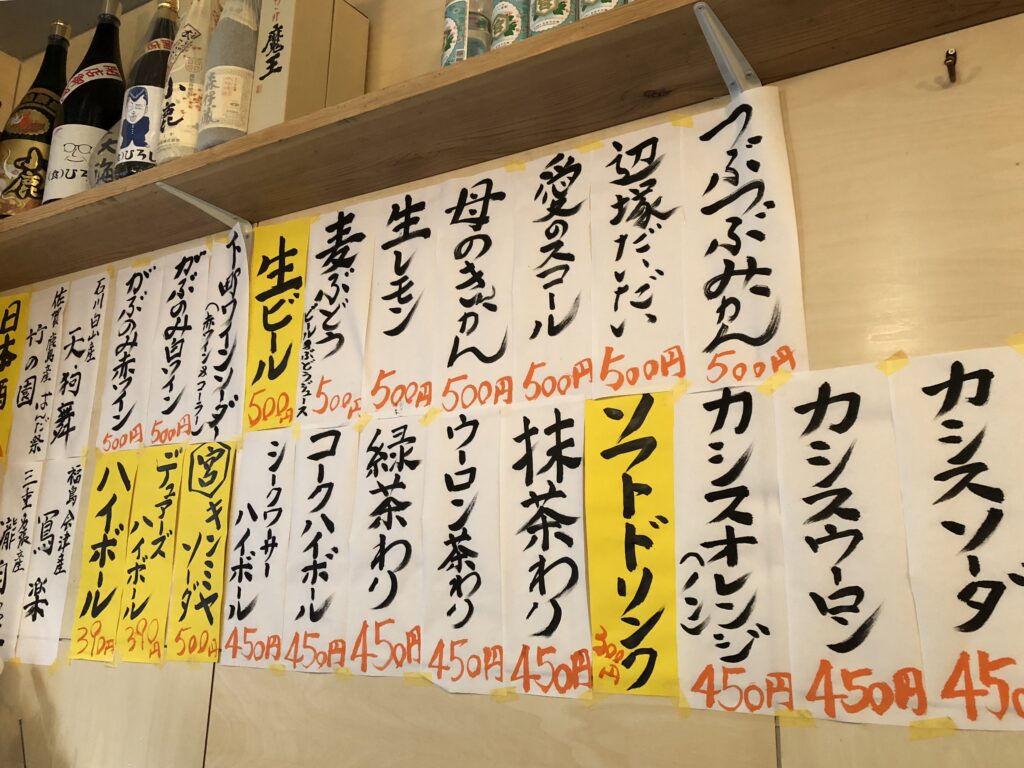 魔王
小鹿
小鹿
大海
(食)ひろし
つぶつぶみかん
500円
辺塚だいだい
500円
愛のスコール
500円
母のきんかん
500円
生レモン
500円
麦ぶどう
500円
生ビール
500円
下町ワインソーダ
がぶのみ白ワイン
500円
がぶのみ赤ワイン
500円
石川白山産
天狗舞
佐賀鹿島産
竹の園
日本酒
カシスソーダ
カシスウーロン
450円
カシスオレンジ
450円
ソフトドリンク
300円
抹茶わり
450円
ウーロン茶わり
450円
緑茶わり
450円
コークハイボール
450円
シークワーサー
ハイボール
450円
宮
キンミヤ
ソーダ
500円
デュアーズ
ハイボール
390円
ハイボール
390円
福島会津産
寫楽
三重名張産